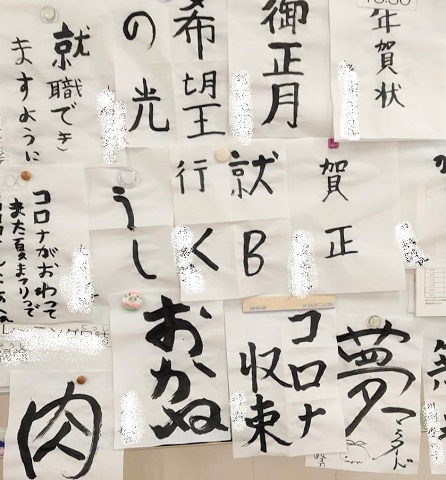 年賀状
御正月
希望
の光
就職でき
ますように
賀正
就B
行く
うし
コロナがおわって
また夏まつりで
夢
コロナ
収束
おかぬ
肉